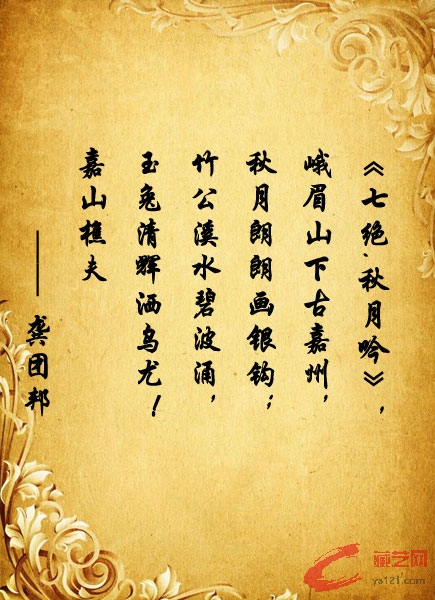 《七绝·秋月吟》,
峨眉山下古嘉州,
秋月朗朗画银钩；
竹公溪水碧波涌,
玉兔清辉洒乌尤！
嘉山樵夫
——龚团邦
藏艺网
ys121.com